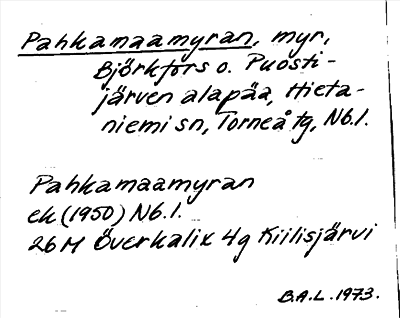 Pahkamaamyran, myr,
Björkfors o. Puosti-
järven alapää, Hieta-
niemi sn, Torneå tg, Nb.l.
Pahkamaamyran
ek (1950) Nb.l.
26M Överkalix 4g Kiilisjärvi
B.A.L. 1973.